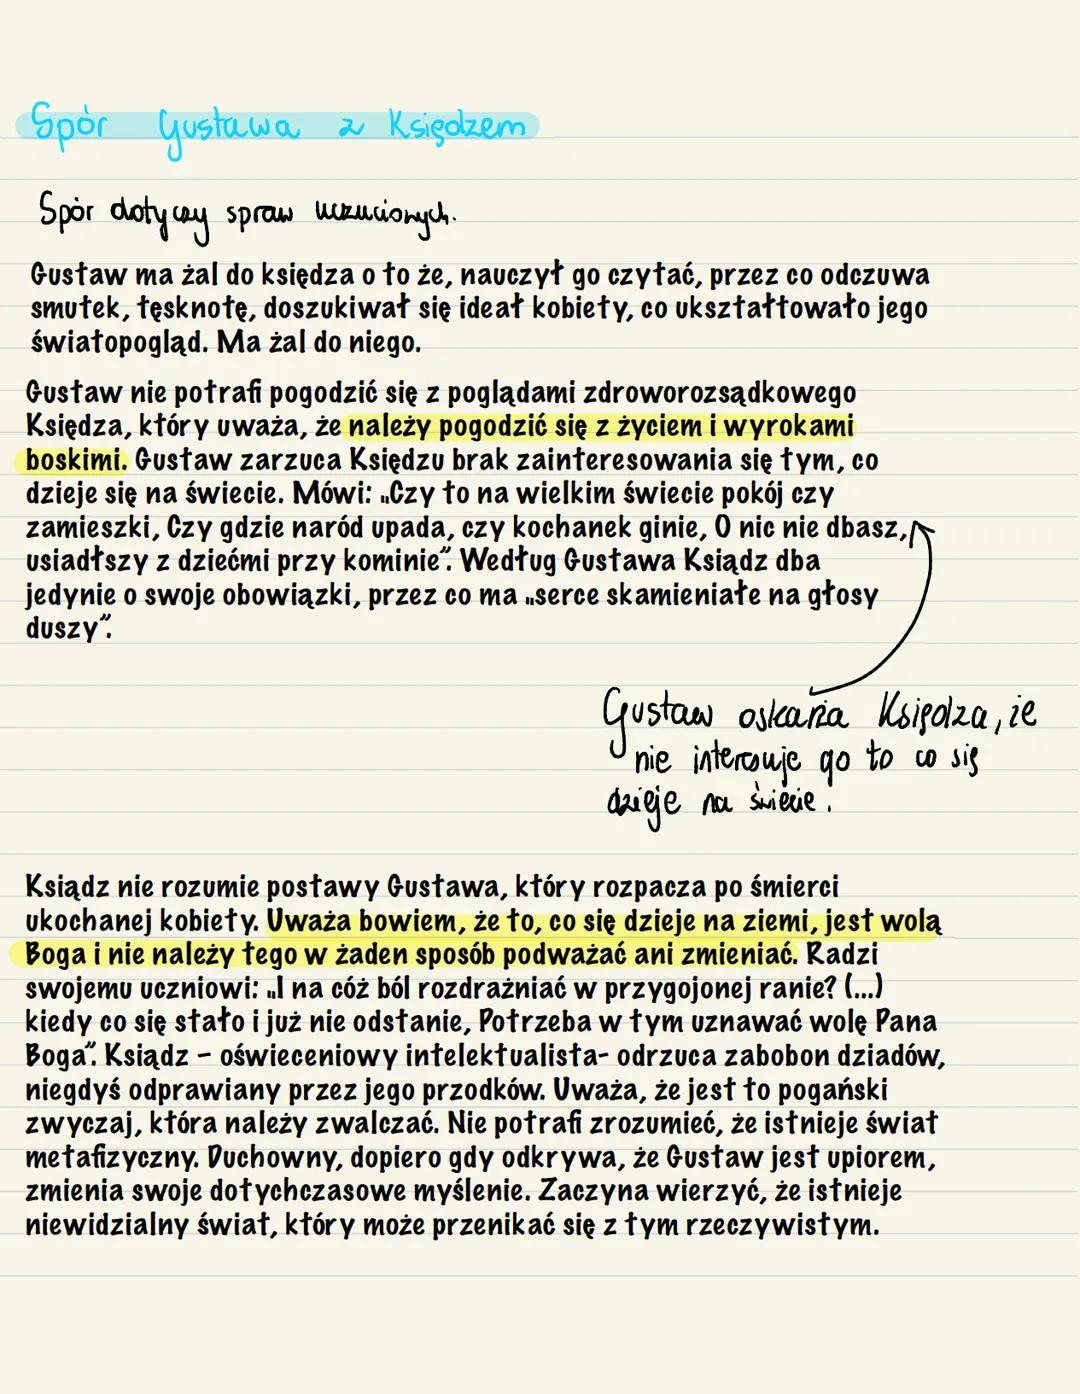 Spór Gustawa z Księdzem
Spór dotyczy spraw uczuciowych.
Gustaw ma żal do księdza o to że, nauczył go czytać, przez co odczuwa
smutek, tęsknotę, doszukiwał się ideał kobiety, co ukształtowało jego
światopogląd. Ma żal do niego.
Gustaw nie potrafi pogodzić się z poglądami zdroworozsądkowego
Księdza, który uważa, że należy pogodzić się z życiem i wyrokami
boskimi. Gustaw zarzuca Księdzu brak zainteresowania się tym, co
dzieje się na świecie. Mówi: „Czy to na wielkim świecie pokój czy
zamieszki, Czy gdzie naród upada, czy kochanek ginie, O nic nie dbasz,
usiadłszy z dziećmi przy kominie”. Według Gustawa Ksiądz dba
jedynie o swoje obowiązki, przez co ma „serce skamieniałe na głosy
duszy”.
Gustaw oskarża Księdza, że
nie interesuje go to co się
dzieje na świecie.
Ksiądz nie rozumie postawy Gustawa, który rozpacza po śmierci
ukochanej kobiety. Uważa bowiem, że to, co się dzieje na ziemi, jest wolą
Boga i nie należy tego w żaden sposób podważać ani zmieniać. Radzi
swojemu uczniowi: „I na cóż ból rozdrażniać w przygojonej ranie? (...)
kiedy co się stało i już nie odstanie, Potrzeba w tym uznawać wolę Pana
Boga”. Ksiądz – oświeceniowy intelektualista- odrzuca zabobon dziadów,
niegdyś odprawiany przez jego przodków. Uważa, że jest to pogański
zwyczaj, która należy zwalczać. Nie potrafi zrozumieć, że istnieje świat
metafizyczny. Duchowny, dopiero gdy odkrywa, że Gustaw jest upiorem,
zmienia swoje dotychczasowe myślenie. Zaczyna wierzyć, że istnieje
niewidzialny świat, który może przenikać się z tym rzeczywistym.